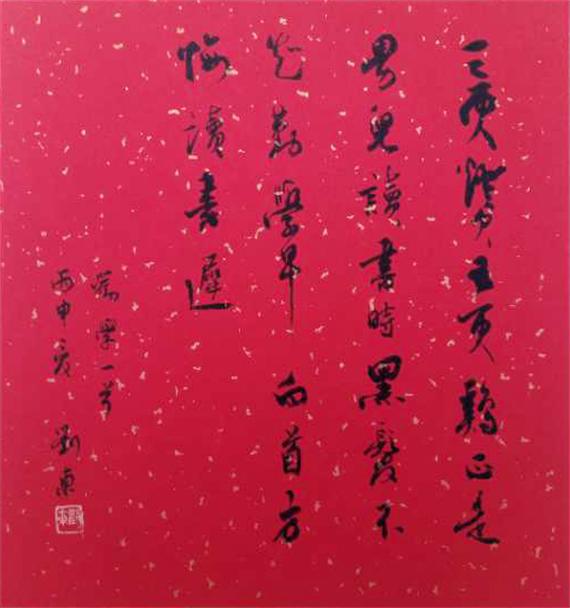 三更灯火五更鸡正是
男儿读书时黑发不
知勤学早白首方
悔读书迟
劝学一首
丙申夏 刘东